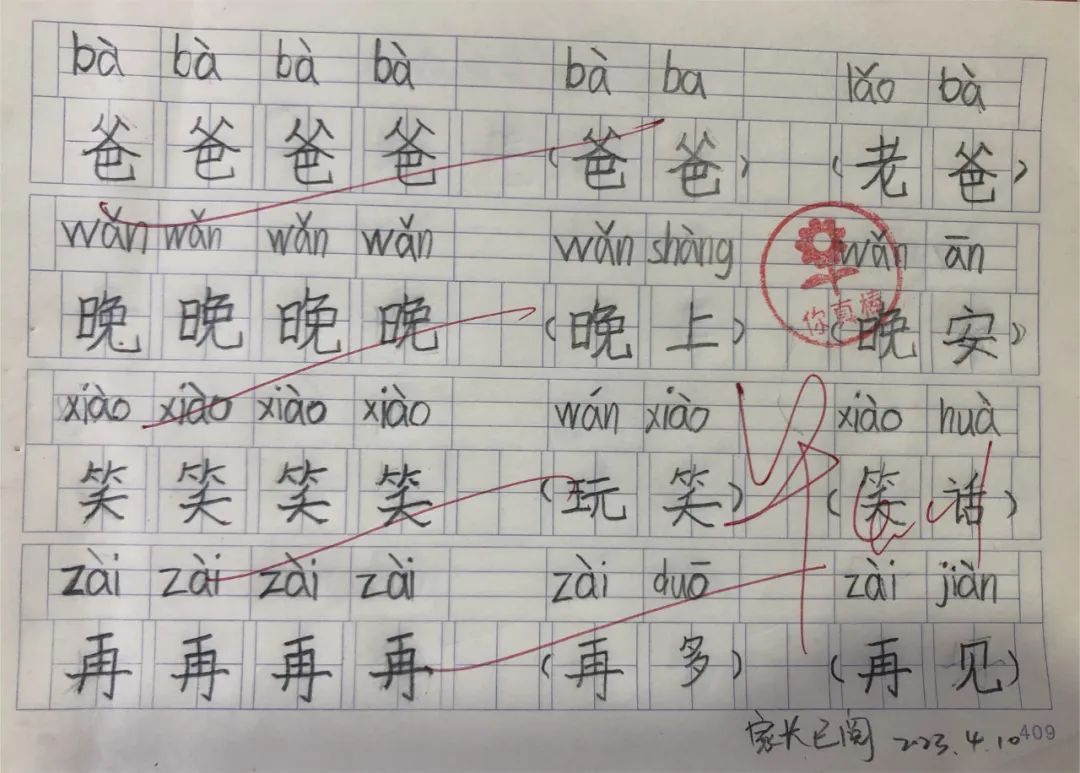 bà bà bà bà bà ba lǎo bà
爸 爸 爸 爸 (爸 爸) (老 爸)
wǎn wǎn wǎn wǎn wǎn shàng wǎn ān
晚 晚 晚 晚 (晚 上) (晚 安)
你真棒
xiào xiào xiào xiào wán xiào xiào huà
笑 笑 笑 笑 (玩 笑) (笑 话)
zài zài zài zài zài duō zài jiàn
再 再 再 再 (再 多) (再 见)
家长已阅 2023.4.10
409